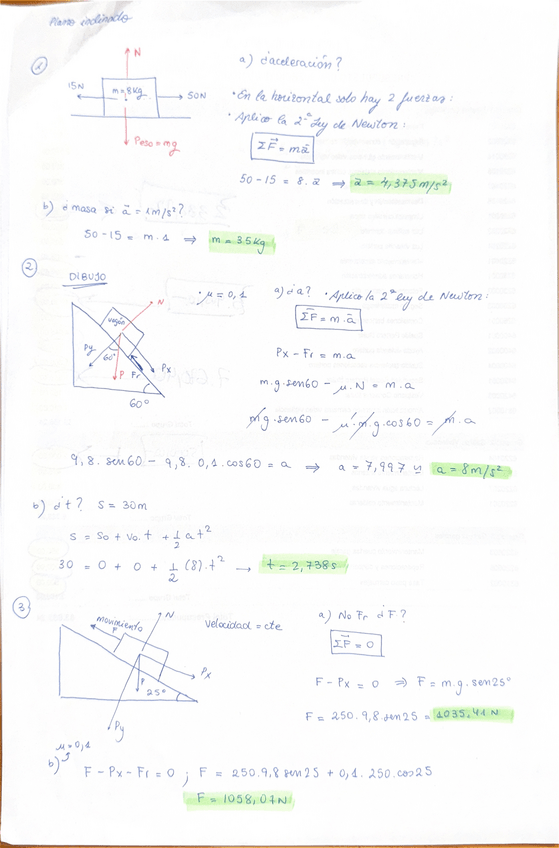 Plano inclinado
1
N
15N
m=8Kg
50N
Peso=mg
a) ¿aceleración?
• En la horizontal solo hay 2 fuerzas:
• Aplico la 2ª Ley de Newton:
ΣF⃗ = ma⃗
50-15 = 8.a ⇒ a = 4,375 m/s²
b) ¿masa si a⃗ = 1m/s²?
50-15 = m.1 ⇒ m = 35Kg
2
DIBUJO
• μ = 0,1
N
vagón
Py
60°
P
Fr
Px
60°
a) ¿a? • Aplico la 2ª ley de Newton:
ΣF⃗ = m.a⃗
Px - Fr = m.a
m.g.sen60 - μ.N = m.a
m.g.sen60 - μ.m.g.cos60 = m.a
9,8.sen60 - 9,8.0,1.cos60 = a ⇒ a = 7,997 ≃ a = 8m/s²
b) ¿t? s = 30m
s = so + vo.t + 1/2 at²
30 = 0 + 0 + 1/2 (8).t² → t = 2,738s
3
movimiento
F
N
Px
P
25°
Py
velocidad = cte
a) No Fr ¿F?
ΣF⃗ = 0
F - Px = 0 ⇒ F = m.g.sen25°
F = 250.9,8.sen25 = 1035,41 N
μ=0,1
b) F - Px - Fr = 0 ; F = 250.9,8 sen25 + 0,1.250.cos25
F = 1058,07N